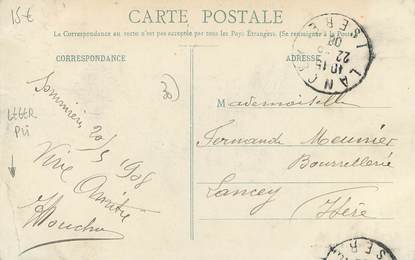 15€
CARTE POSTALE
La Correspondance au recto n'est pas acceptée par tous les Pays Étrangers. (Se renseigner à la Poste)
CORRESPONDANCE
ADRESSE
LANCEY
10-15
22
08
ISERE
30
LEGER
PLI
Sommières 20/5 1908
Vive
Mademoiselle
Fernande Meunier
Bourrellerie
Lancey
Isère